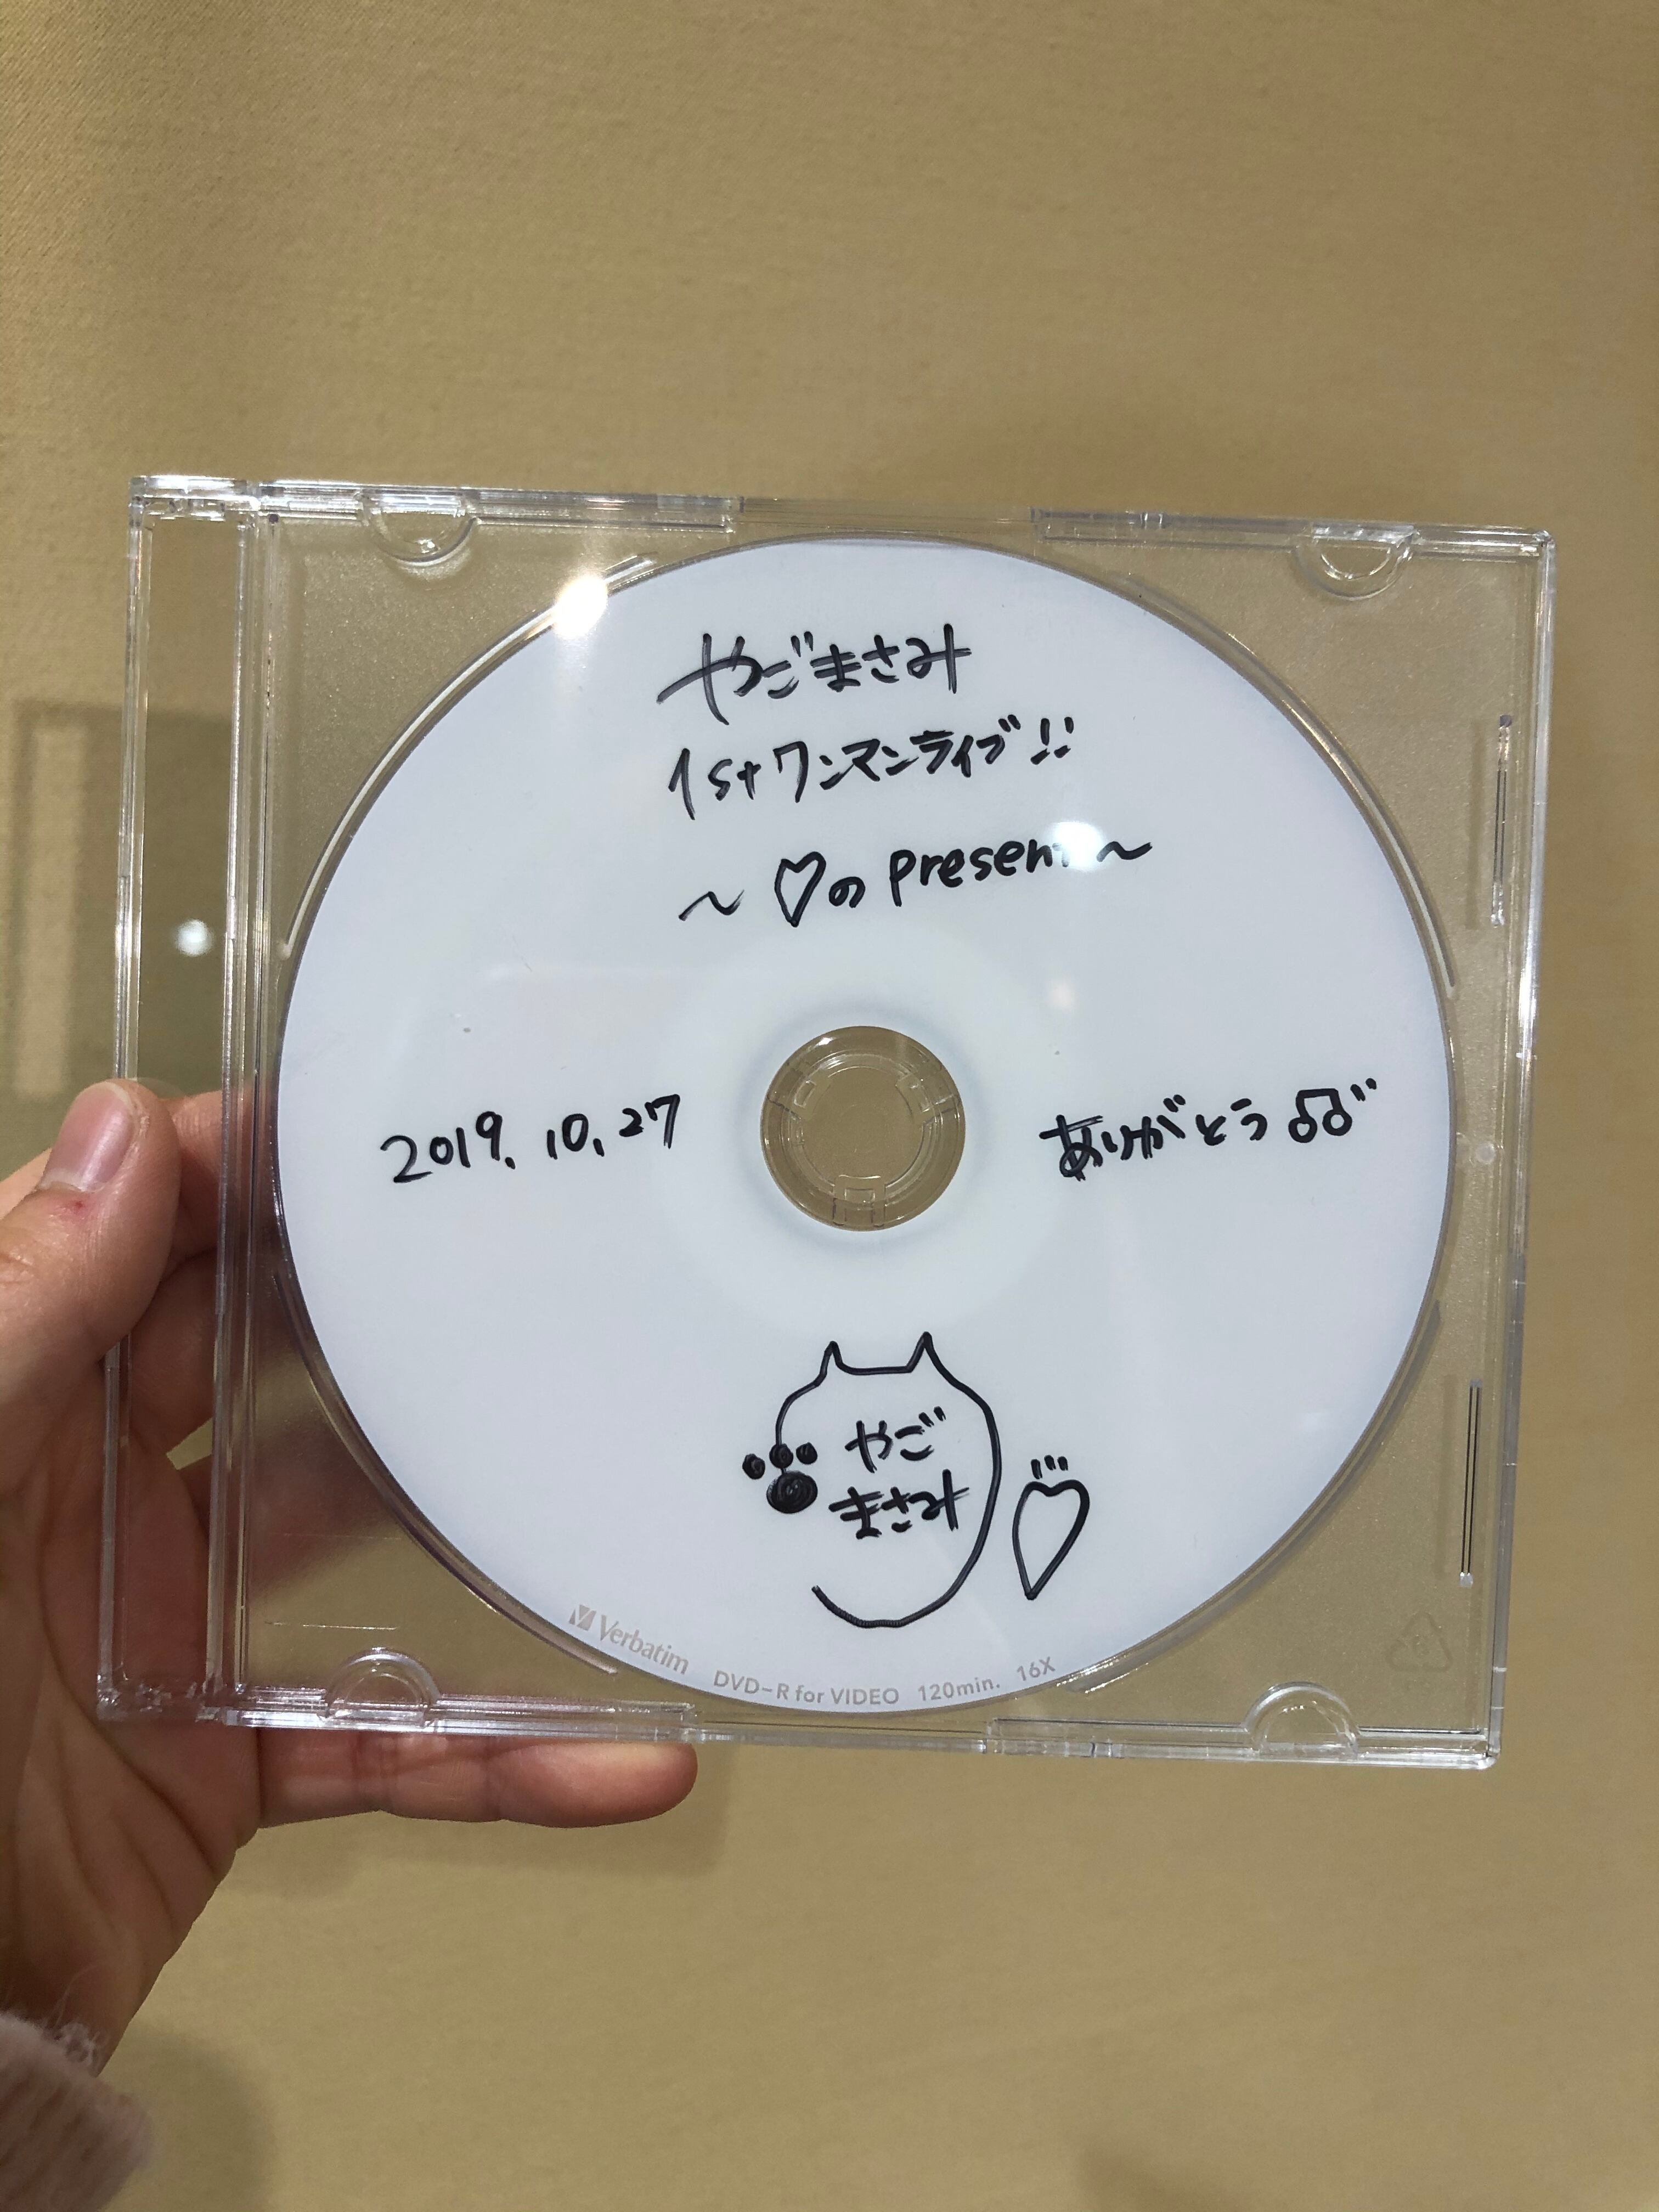 やごまさみ
1stワンマンライブ!!
～♡のpresent～
2019.10.27
ありがとう♫
やご
まさみ
Verbatim DVD-R for VIDEO 120min. 16X